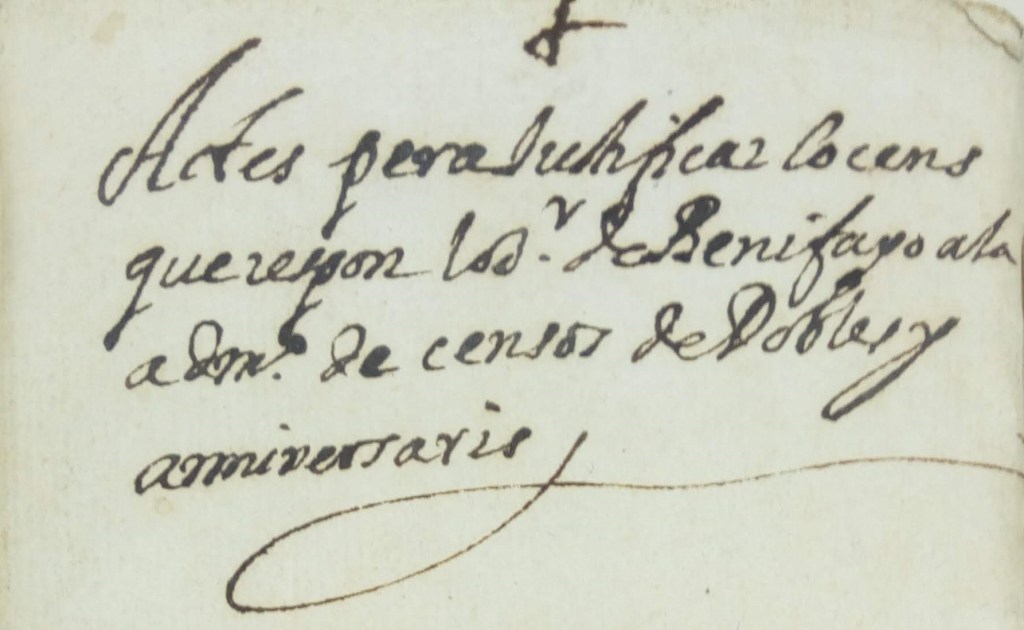 Actes pera Justificar lo cens
que respon lo Sʳ. de Benifayo a la
admᵒ. de censos de Dobles y
anniversaris